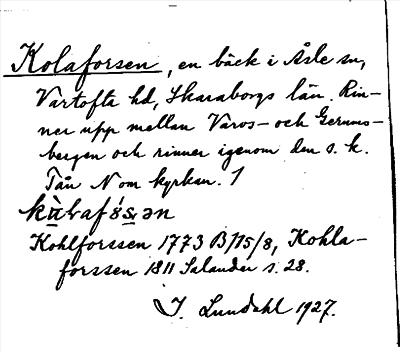 Kolaforsen, en bäck i Åsle sn,
Vartofta hd, Skaraborgs län. Rin-
ner upp mellan Varvs- och Gerums-
bergen och rinner igenom den s. k.
Tån N om kyrkan. 1
kàlafósən
Kohlforssen 1773 B/15/8, Kohla-
forssen 1811 Salander s. 28.
I. Lundahl 1927.